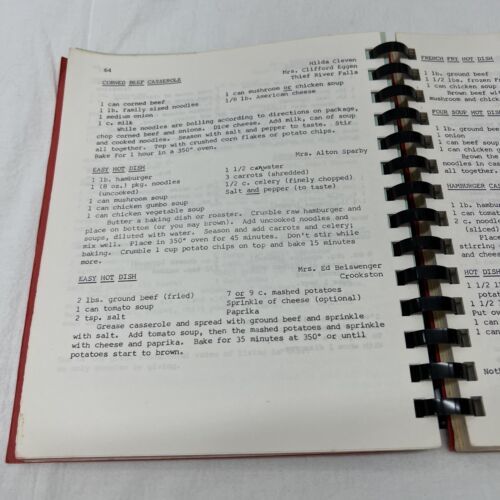 64
Hilda Cleven
Mrs. Clifford Eggen
Thief River Falls
CORNED BEEF CASSEROLE
1 can corned beef
1 lb. family sized noodles
1 medium onion
1 c. milk
1 can mushroom OR chicken soup
1/8 lb. American cheese
While noodles are boiling according to directions on package,
chop corned beef and onions. Dice cheese. Add milk, can of soup
and cooked noodles. Season with salt and pepper to taste. Stir
all together. Top with crushed corn flakes or potato chips.
Bake for 1 hour in a 350° oven.
Mrs. Alton Sparby
EASY HOT DISH
1 lb. hamburger
1 (8 oz.) pkg. noodles
(uncooked)
1 can mushroom soup
1 can chicken gumbo soup
1 can chicken vegetable soup
1 1/2 can water
3 carrots (shredded)
1/2 c. celery (finely chopped)
Salt and pepper (to taste)
Butter a baking dish or roaster. Crumble raw hamburger and
place on bottom (or you may brown). Add uncooked noodles and
soups, diluted with water. Season and add carrots and celery;
mix well. Place in 350° oven for 45 minutes. Don't stir while
baking. Crumble 1 cup potato chips on top and bake 15 minutes
more.
Mrs. Ed Beiswenger
Crookston
EASY HOT DISH
2 lbs. ground beef (fried)
1 can tomato soup
2 tsp. salt
7 or 9 c. mashed potatoes
Sprinkle of cheese (optional)
Paprika
Grease casserole and spread with ground beef and sprinkle
with salt. Add tomato soup, then the mashed potatoes and sprinkle
with cheese and paprika. Bake for 35 minutes at 350° or until
potatoes start to brown.
FRENCH FRY HOT DISH
1 lb. ground beef
1 1/2 lbs. frozen
1 can chicken soup
Brown beef
mushroom and chick
FOUR SOUP HOT DISH
1 lb. ground
onion
1 can beef soup
1 can chicken
Brown
noodles in cas
all together.
HAMBURGER
1 lb. hambu
1 can
1 can
2 c. noodle
(sliced)
Place
stirring
and cheese
HOT DISH
1 1/2
potat
1 1/2
Put ov
1 can
1 can
Not